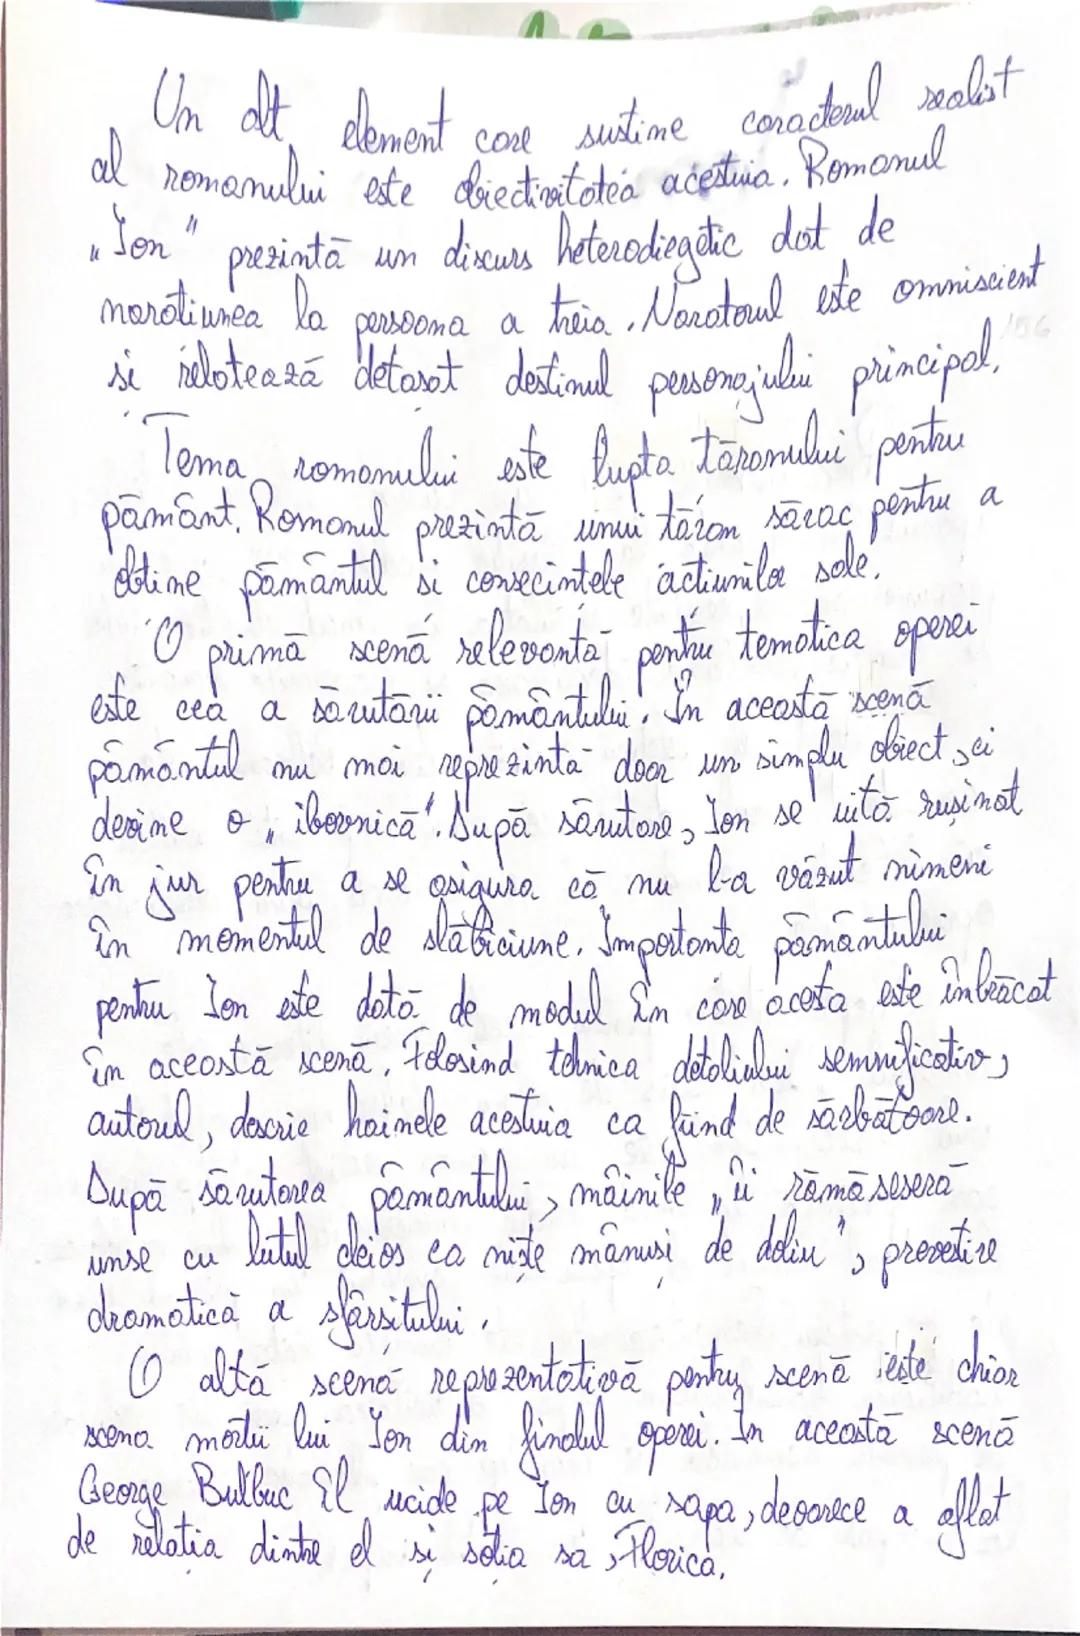 Un alt element care sustine caracterul realist
al romanului este obiectivitatea acestuia. Romanul
„Ion" prezintă un discurs heterodiegetic dat de
naratiunea la persoana a treia. Naratorul este omniscient
si relatează detasat destinul personajului principal.
Tema romanului este lupta tăranului pentru
pământ. Romanul prezintă unui tăran sărac pentru a
obtine pământul si consecintele actiunilor sale.
O primă scenă relevantă pentru tematica operei
este cea a sărutării pământului. În această scenă
pământul nu mai reprezintă doar un simplu obiect, ci
devine o „ibovnică". După sărutare, Ion se uită rușinat
în jur pentru a se asigura că nu l-a văzut nimeni
în momentul de slăbiciune. Importanta pământului
pentru Ion este dată de modul în care acesta este îmbrăcat
în această scenă. Folosind tehnica detaliului semnificativ,
autorul, descrie hainele acestuia ca fiind de sărbătoare.
După sărutarea pământului, mâinile „îi rămăseseră
unse cu lutul cleios ca niște mănusi de doliu", prevestire
dramatică a sfârsitului.
O altă scenă reprezentativă pentru scenă este chiar
scena mortii lui Ion din finalul operei. În această scenă
George Bulbuc îl ucide pe Ion cu sapa, deoarece a aflat
de relatia dintre el și sotia sa, Florica.